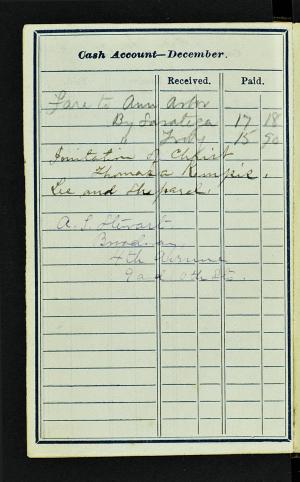 Cash Account—December.
Received. Paid.
Fare to Ann Arbor
By Saratoga 17 18
" Troy 15 90
Imitation of Christ
Thomas a Kempis.
Lee and Shepard.
A. T. Stewart
Broadway
4th Avenue
9 and 10th Sts.